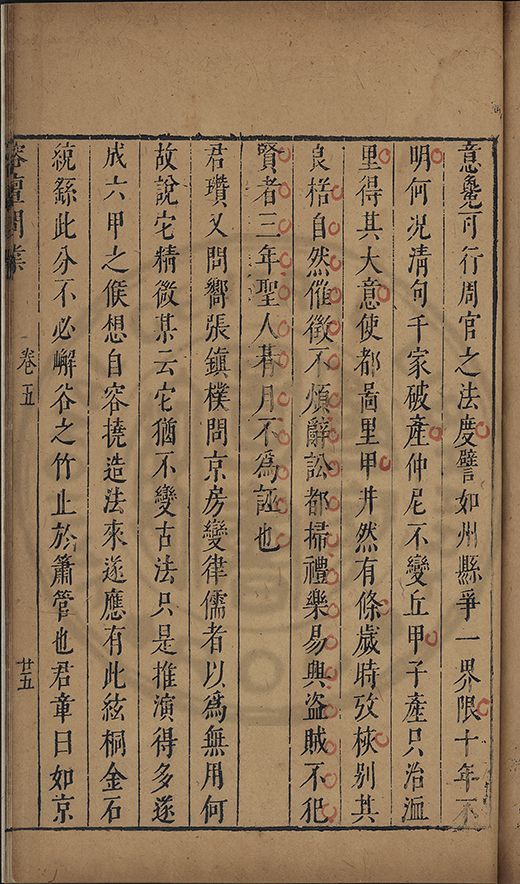 意麂可行周官之法度譬如州縣爭一界限十年不
明何况清句千家破產仲尼不變丘甲子產只治洫
里得其大意使都啚里甲井然有條歲時攷校别其
良楛自然催徵不煩辭訟都掃禮樂易興盜賊不犯
賢者三年聖人朞月不為誣也
君瓚又問嚮張鎮樸問京房變律儒者以為無用何
故說它精微某云它猶不變古法只是推演得多遂
成六甲之候想自容撓造法來遂應有此絃桐金石
統繇此分不必嶰谷之竹止於簫管也君章曰如京
榕壇問業
卷五
廿五